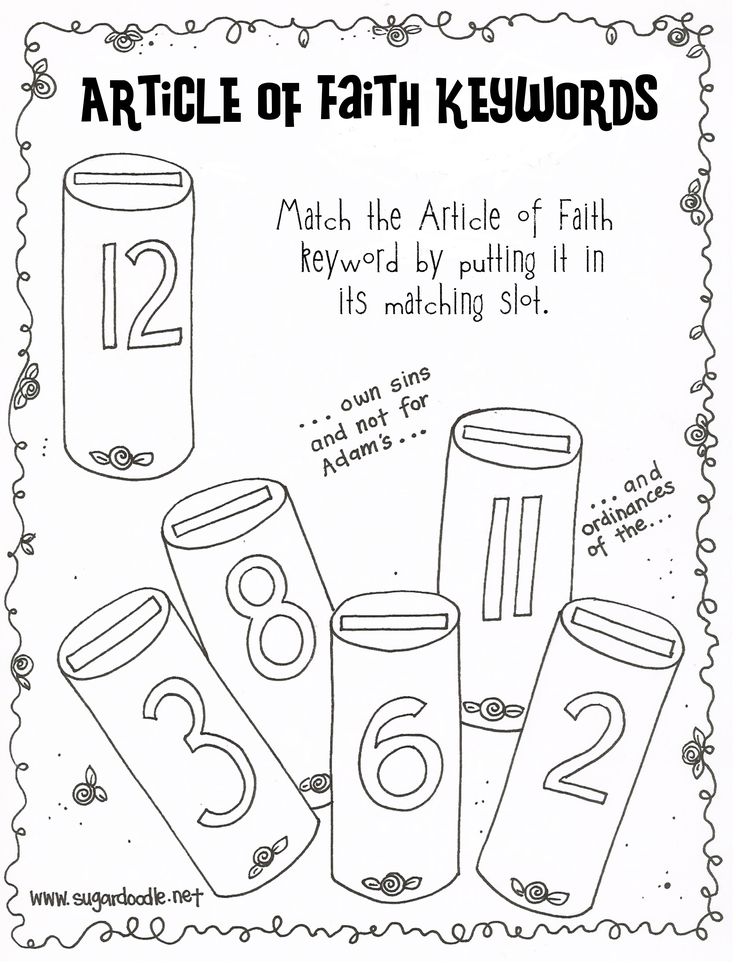 ARTICLE OF FAITH KEYWORDS
12
Match the Article of Faith
keyword by putting it in
its matching slot.
... own sins
and not for
Adam's...
11
... and
ordinances
of the...
8
3
6
2
www.sugardoodle.net